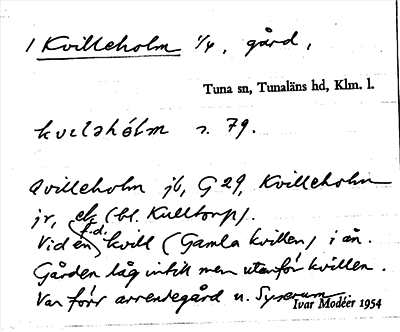 1 Kvilleholm 1/4, gård,
Tuna sn, Tunaläns hd, Klm. l.
kvilshólm s. 79.
Qvilleholm jb, G 29, Kvilleholm
jr, ek (bl. Kulltorp).
Vid en f.d. kvill (Gamla kvillen) i ån.
Gården låg intill men utanför kvillen.
Var förr arrendegård u. Syserum
Ivar Modéer 1954